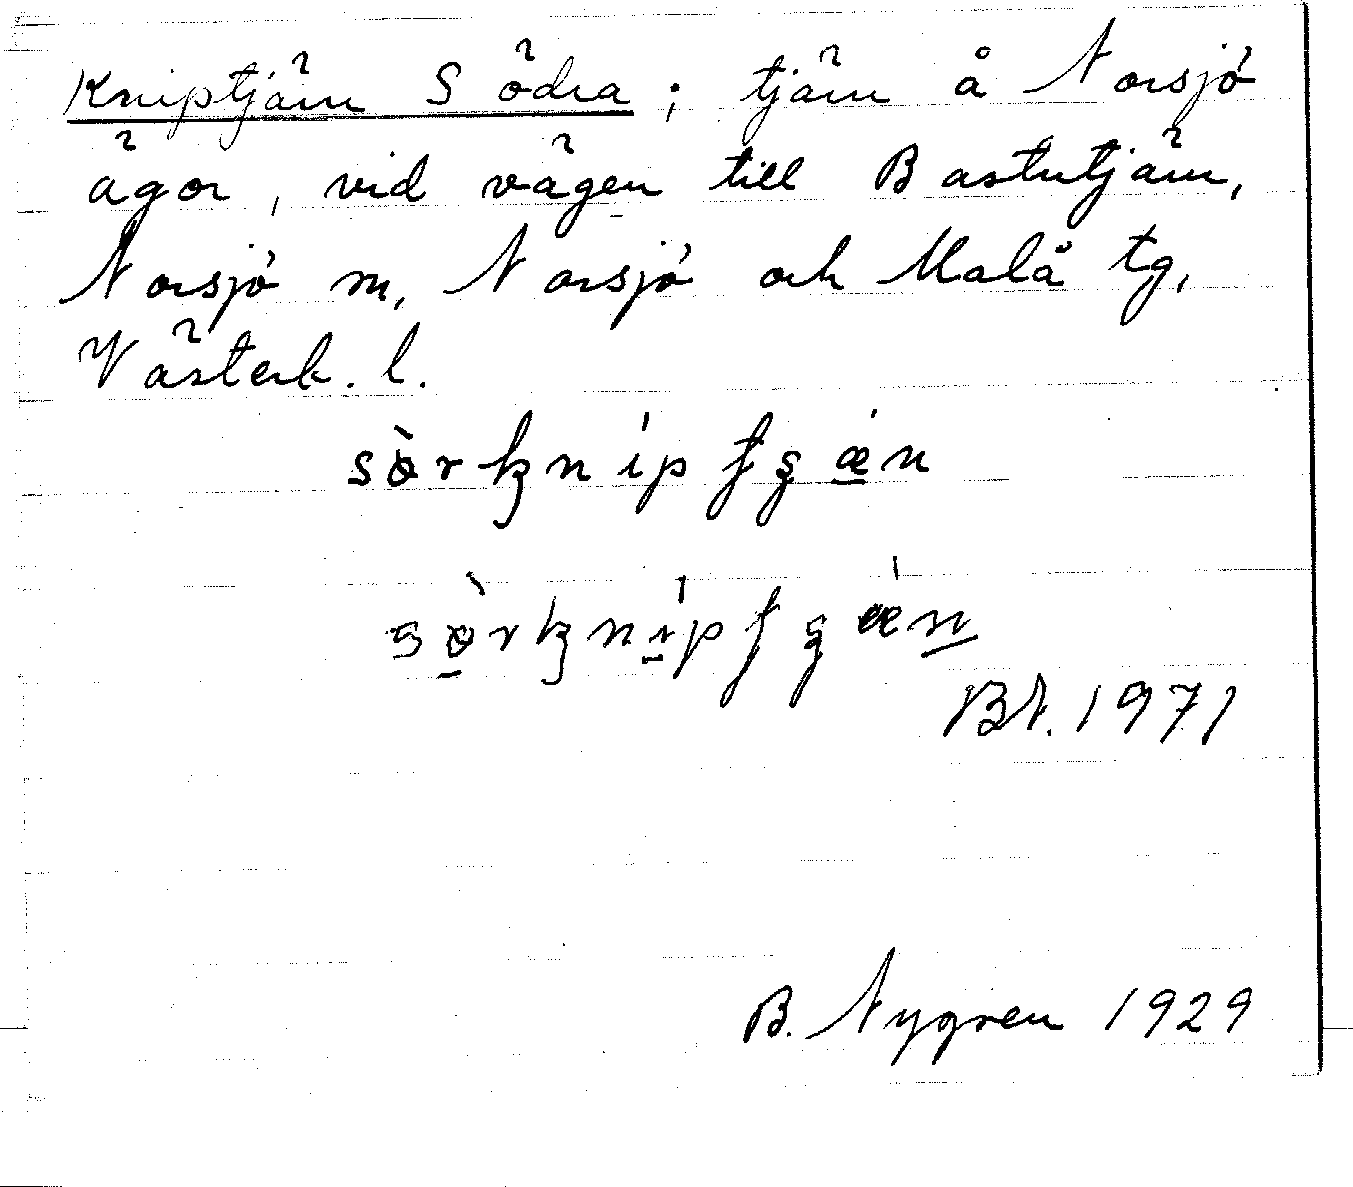 Kniptjärn Södra ; tjärn å Norsjö
ägor, vid vägen till Bastutjärn,
Norsjö sn, Norsjö och Malå tg,
Västerb. l.
BN. 1971
B. Nygren 1929